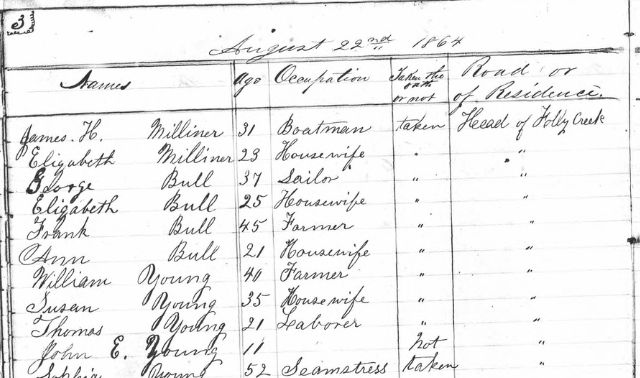 3
August 22nd 1864
Names age Occupation Taken the oath or not Road or of Residence.
James. H. Milliner 31 Boatman taken Head of Folly Creek
Elizabeth Milliner 23 Housewife " "
George Bull 37 Sailor " "
Elizabeth Bull 25 Housewife " "
Frank Bull 45 Farmer " "
Ann Bull 21 Housewife " "
William Young 40 Farmer " "
Susan Young 35 Housewife " "
Thomas Young 21 Laborer " "
John E. Young 11 not "
Sophia Young 52 Seamstress taken "